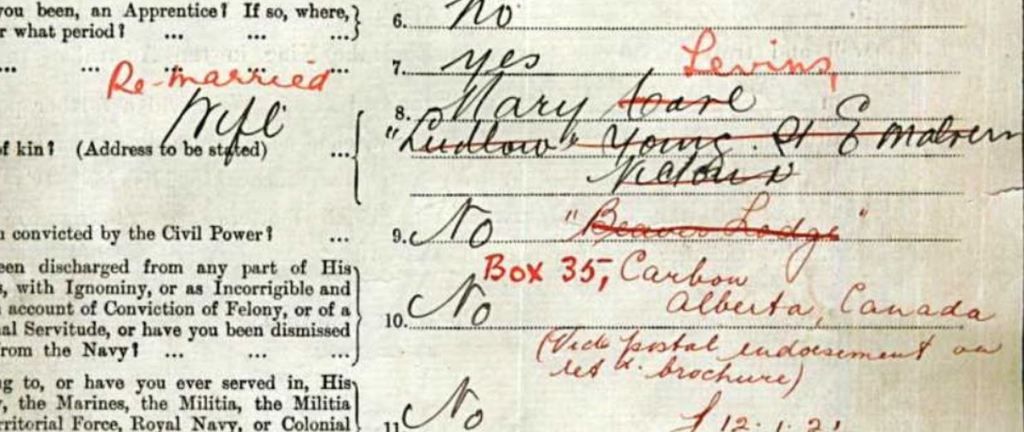 you been, an Apprentice? If so, where,
r what period? ... ... ...
6. No
... ... ... ...
7. yes
Re-married
Levins,
Wife
8. Mary Carl
f kin? (Address to be stated) ...
"Ludlow" Young St E Malvern
Victoria
n convicted by the Civil Power? ...
9. No "Beaver Lodge"
Box 35, Carbon
Alberta, Canada
een discharged from any part of His
s, with Ignominy, or as Incorrigible and
account of Conviction of Felony, or of a
al Servitude, or have you been dismissed
rom the Navy? ... ... ...
10. No
(Vide postal endorsement on
ret d. brochure)
12.1.21
g to, or have you ever served in, His
, the Marines, the Militia, the Militia
rritorial Force, Royal Navy, or Colonial
11 No